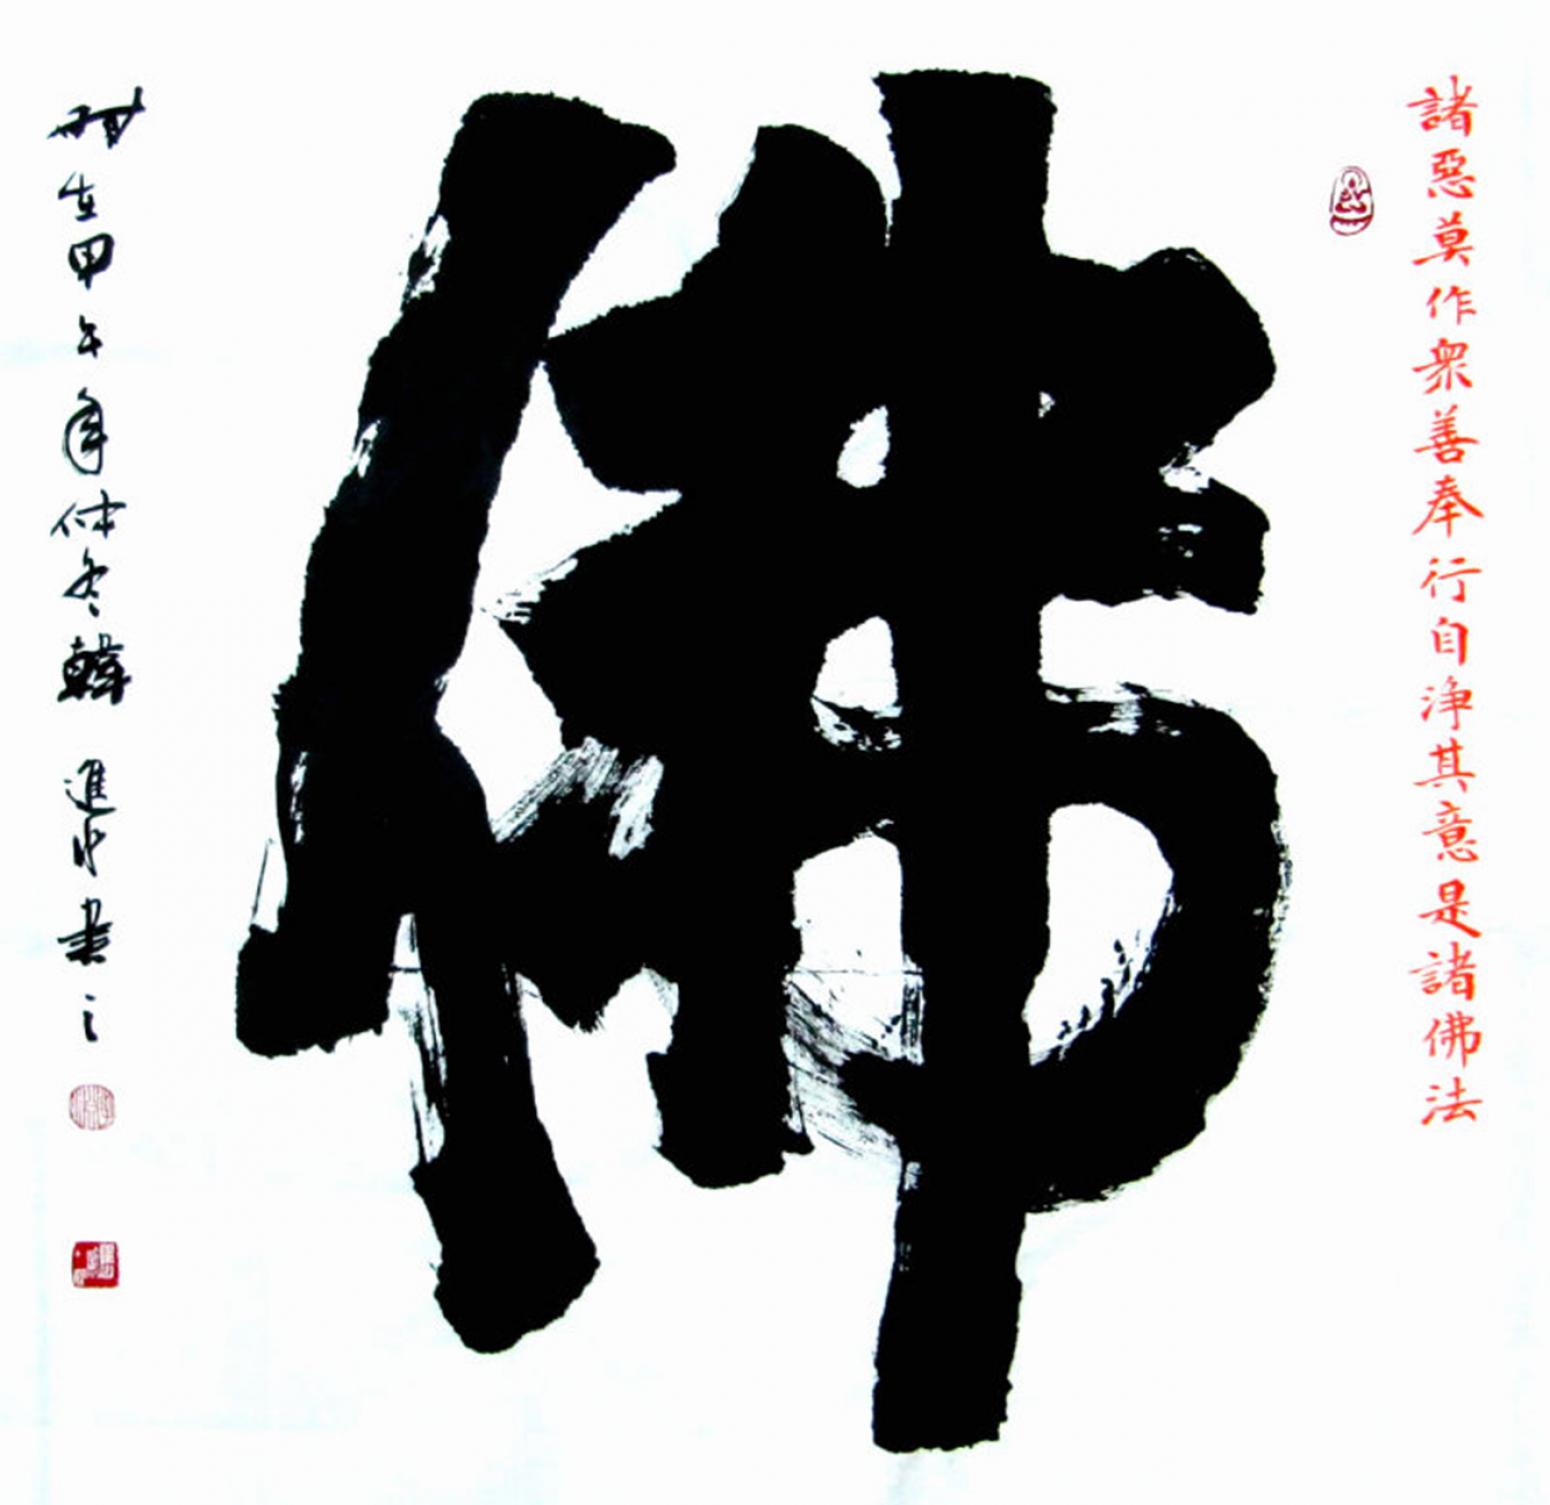 諸惡莫作衆善奉行自淨其意是諸佛法
佛
時在甲午年仲冬韓進水書之